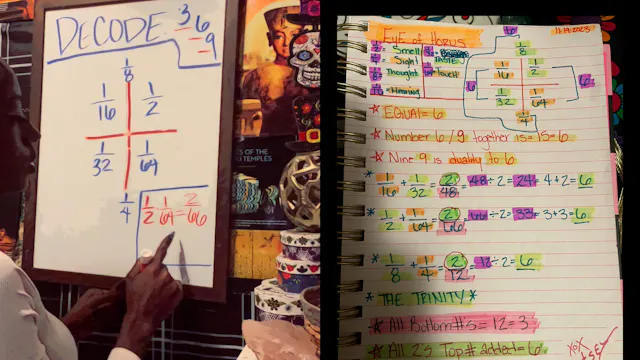 DECODE
3 6 9
1/8
1/16 1/2
1/32 1/64
1/4
1/2 · 1/64 = 2/66
TEMPLES
EYE OF HORUS
1/2 = Smell
1/4 = Sight
1/8 = Thought
1/16 = Hearing
1/32 = TASTE
1/64 = Touch
6
1/8
1/16 1/2
6 6
1/32 1/64
1/4
* EQUAL = 6
* Number 6/9 together is = 15 = 6
* Nine 9 is duality to 6
* 1/16 + 1/32 = 2/48 = 48 ÷ 2 = 24 = 4 + 2 = 6
* 1/2 + 1/64 = 2/66 = 66 ÷ 2 = 33 = 3 + 3 = 6
* 1/8 + 1/4 = 2/12 = 12 ÷ 2 = 6
* THE TRINITY *
* All Bottom #'s = 12 = 3
* All 2's Top # Added = 6